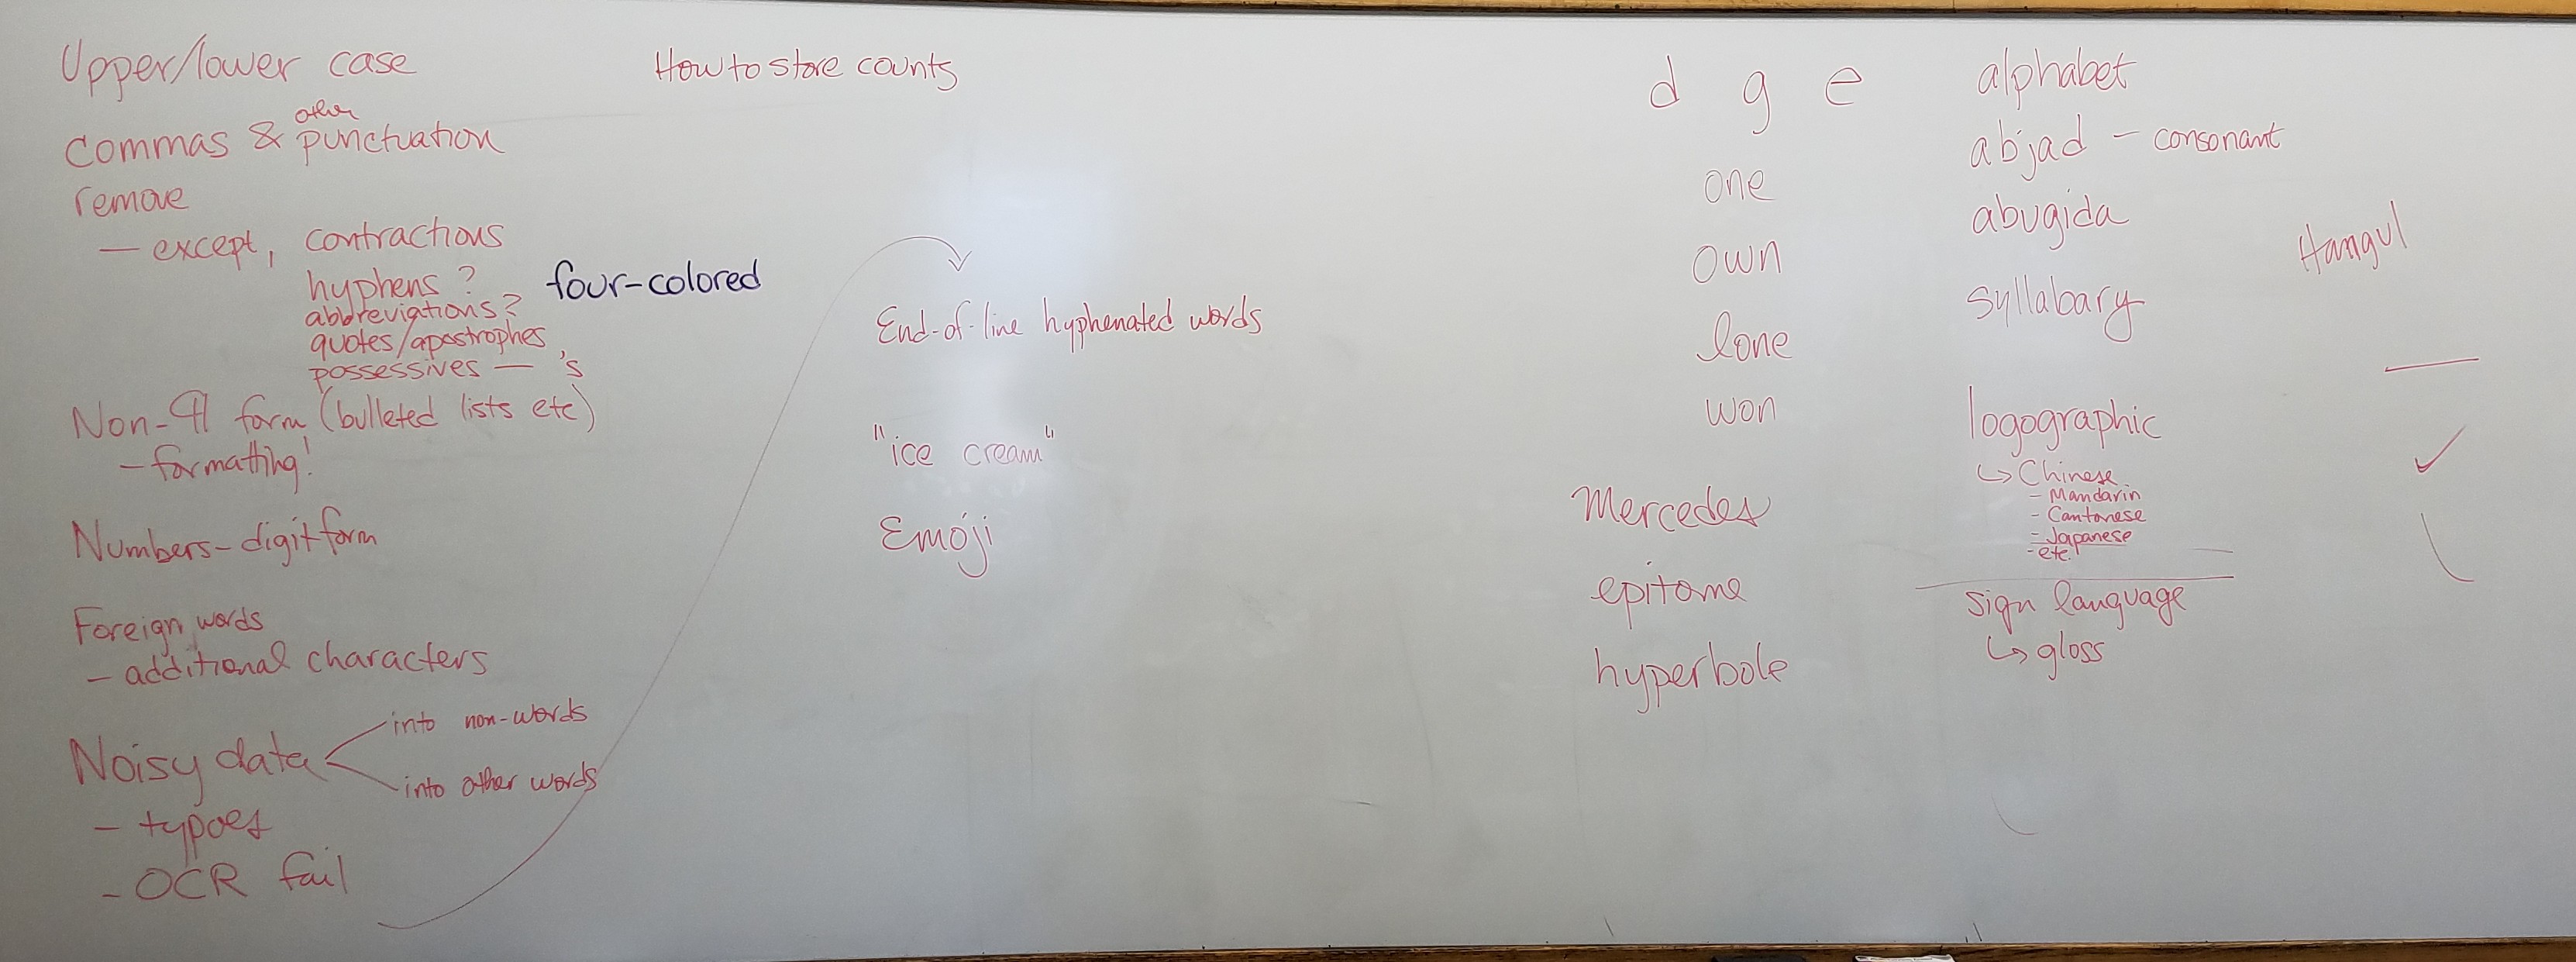 Upper/lower case
commas & other punctuation
remove
– except, contractions
hyphens ? four-colored
abbreviations?
quotes/apostrophes
possessives – 's
Non-¶ form (bulleted lists etc)
– formatting!
Numbers – digit form
Foreign words
– additional characters
Noisy data
into non-words
into other words
– typoes
– OCR fail
How to store counts
End-of-line hyphenated words
"ice cream"
Emoji
d g e
one
own
lone
won
Mercedes
epitome
hyperbole
alphabet
abjad – consonant
abugida
syllabary
logographic
↳ Chinese
– Mandarin
– Cantonese
– Japanese
– etc.
sign language
↳ gloss
Hangul